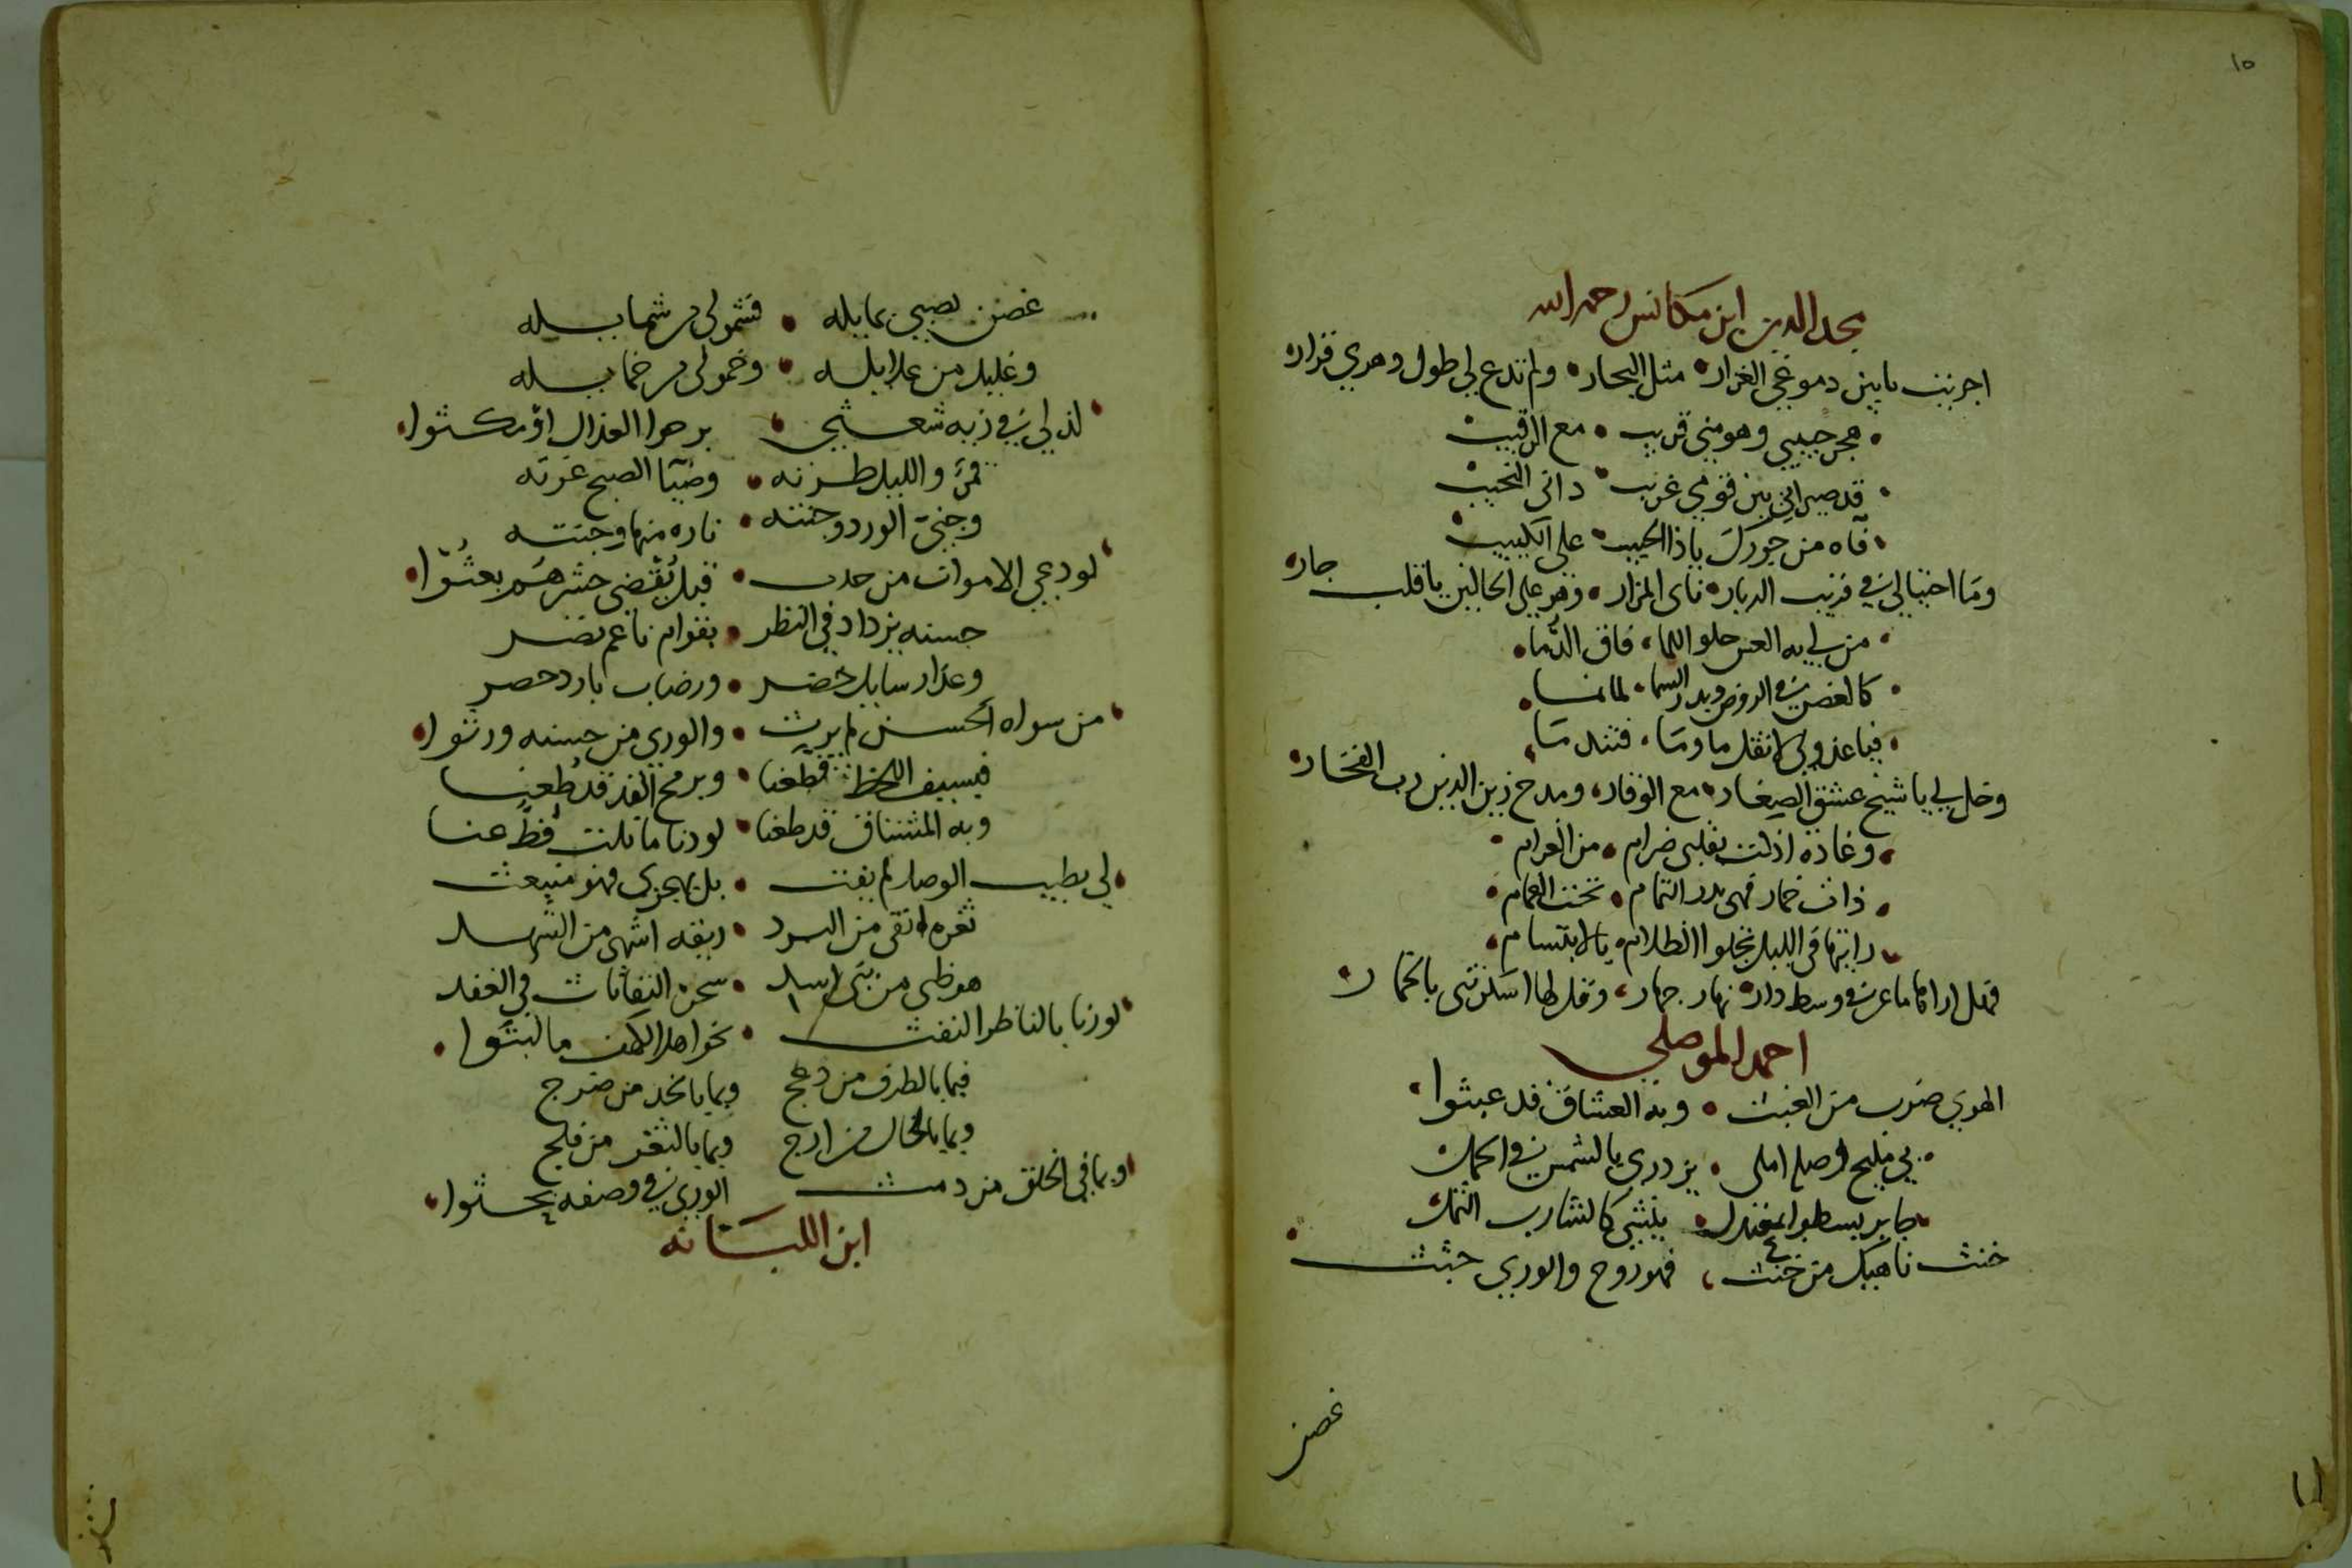 ١٥
مجد الدين ابن مكانس رحمه الله
اجريت يا عين دموعي الغزار مثل البحار ولم تدع لي طول دهري قرار
هجر حبيبي وهو مني قريب مع الرقيب
قد صيراني بين قومي غريب داني النحيب
فآه من جورك يا ذا الحبيب على الكييب
وما احتيالي في قريب الديار ناى المزار وهو على الحالين يا قلب جار
من لي به العس حلو اللما فاق الدما
كالغصن في الروض وبدر السما لما نما
فيا عذولي لا تقل ما وما فتندما
وخل لي يا شيخ عشق الصغار مع الوقار ومدح زين الدين رب الفخار
وغاده اذكت بقلبي ضرام من الغرام
ذات خمار فهى بدر التمام تحت الغمام
رايتها في الليل تجلوا الظلام بالابتسام
وسط دار نهار جهار وقل لها استرتى بالخمار
احمد الموصلي
الهوي ضرب من العبث وبه العشاق قد عبثوا
بي مليح وصله املي يزدري بالشمس في الحمل
جاير يسطوا بمعتدل ينثني كالشارب الثمل
خنث ناهيك من خنث فهو روح والوري جثث
غصن
غصن يصبي تمايله فشمولي من شمايله
وغليلي من غلايله وخمولي من خمايله
لذ لي في زيه شعثي برحوا العذال او مكثوا
قمر والليل طرته وضيا الصبح غرته
وجني الورد وجنته ناره منها وجنته
لو دعي الاموات من جدث قبل يقضي حشرهم بعثوا
حسنه يزداد في النظر بقوام ناعم نضر
وعذار سايل خضر ورضاب بارد خصر
من سواه الحسن لم يرث والوري من حسنه ورثوا
فبسيف اللحظ قطعنا وبرمح القد قد طعنا
وبه المشتاق قد طعنا لو دنا ما قلت قط عنا
لي بطيب الوصل لم يغث بل بهجري فهو منبعث
ثغره انقى من البرد ريقه اشهى من الشهد
هو ظبي من بني اسد سحر النفاثات في العقد
لو رنا بالناظر النفث نحو اهل الكهف ما لبثوا
فبما بالطرف من دعج وبما بالخد من ضرج
وبما بالخال من ارج وبما بالثغر من فلج
وبما في الخلق من دمث الوري في وصفه بحثوا
ابن اللبانه